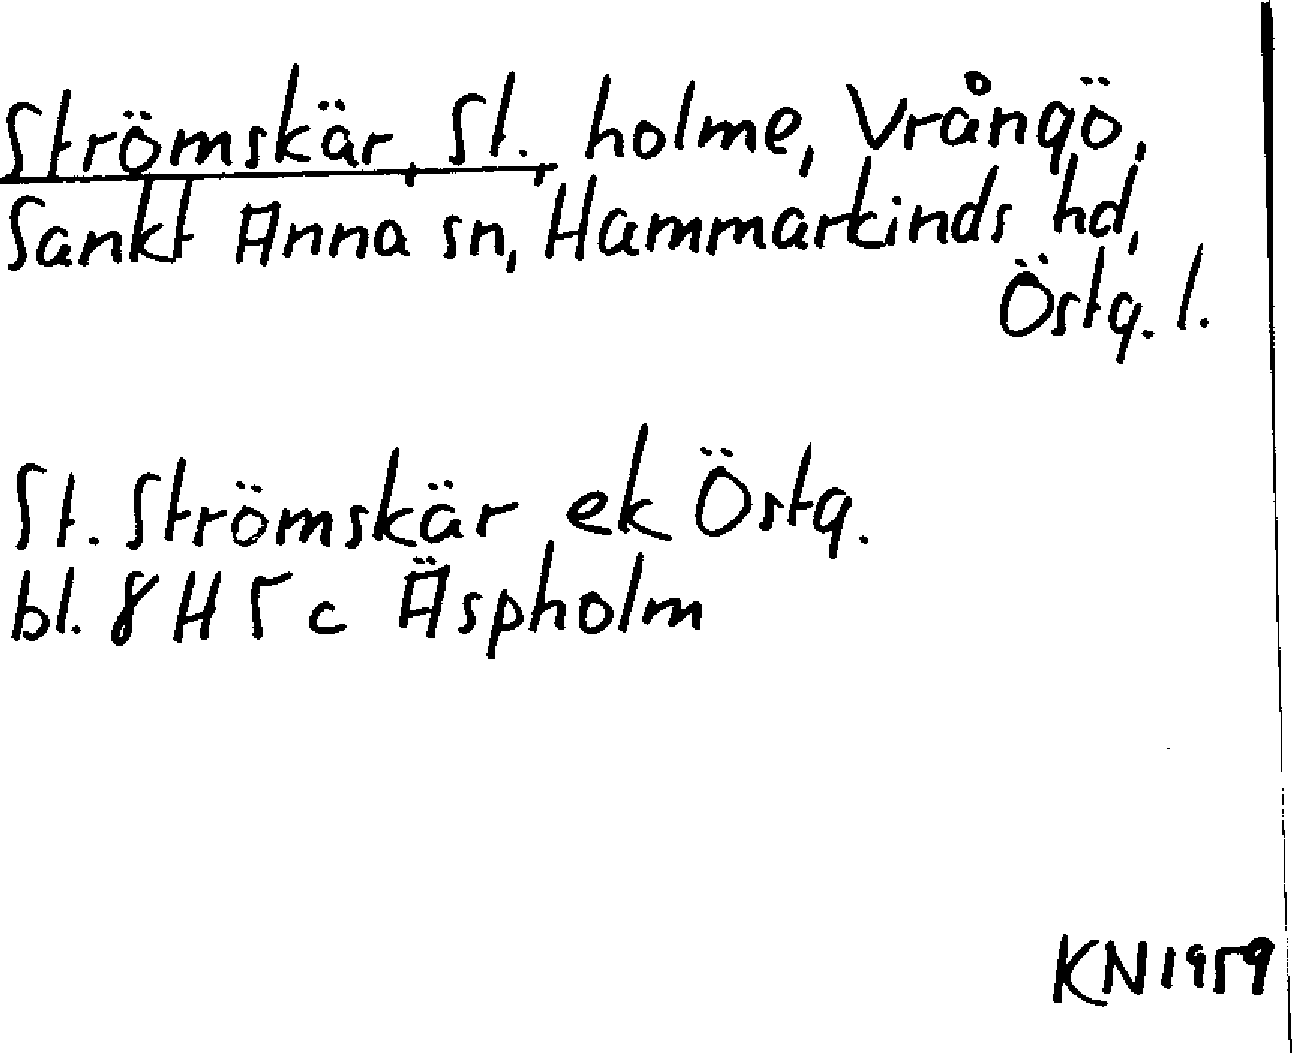 Strömskär, St., holme, Vrångö,
Sankt Anna sn, Hammarkinds hd,
Östg. l.
St. Strömskär ek Östg.
bl. 8 H 5 c Äspholm
KN 1959